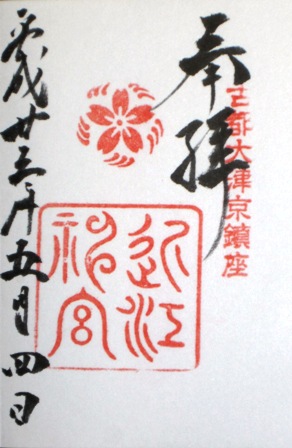 奉拝
古都大津京鎮座
近江神宮
平成廿三年五月四日